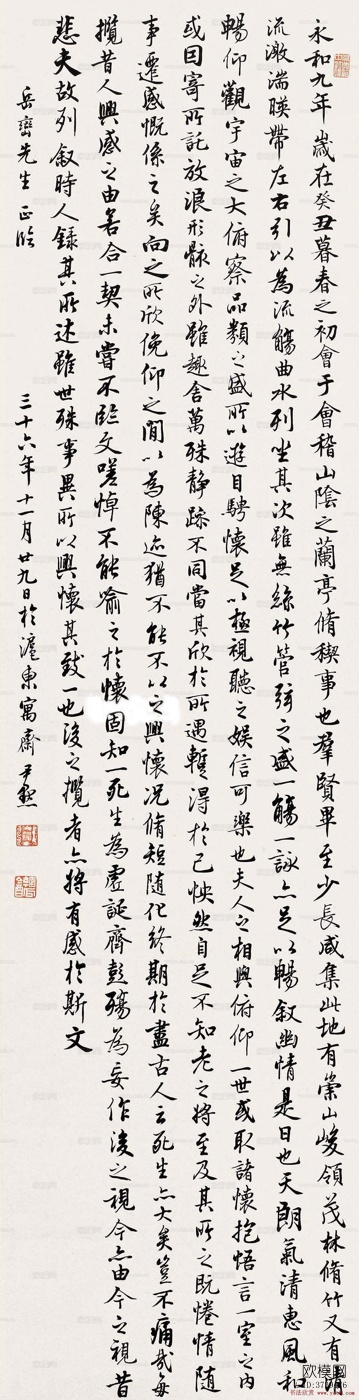 永和九年歲在癸丑暮春之初會于會稽山陰之蘭亭脩稧事也羣賢畢至少長咸集此地有崇山峻領茂林脩竹又有清
流激湍暎帶左右引以為流觴曲水列坐其次雖無絲竹管弦之盛一觴一詠亦足以暢敘幽情是日也天朗氣清惠風和
暢仰觀宇宙之大俯察品類之盛所以遊目騁懷足以極視聽之娛信可樂也夫人之相與俯仰一世或取諸懷抱悟言一室之內
或因寄所託放浪形骸之外雖趣舍萬殊靜躁不同當其欣於所遇暫得於己怏然自足不知老之將至及其所之既惓情隨
事遷感慨係之矣向之所欣俛仰之閒以為陳迹猶不能不以之興懷況脩短隨化終期於盡古人云死生亦大矣豈不痛哉每
攬昔人興感之由若合一契未嘗不臨文嗟悼不能喻之於懷固知一死生為虛誕齊彭殤為妄作後之視今亦由今之視昔
悲夫故列敘時人錄其所述雖世殊事異所以興懷其致一也後之攬者亦將有感於斯文
先生正
三十六年十一月廿九日於滬東寓齋尹默
欧模网